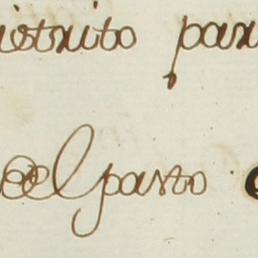 istrito par
el parto